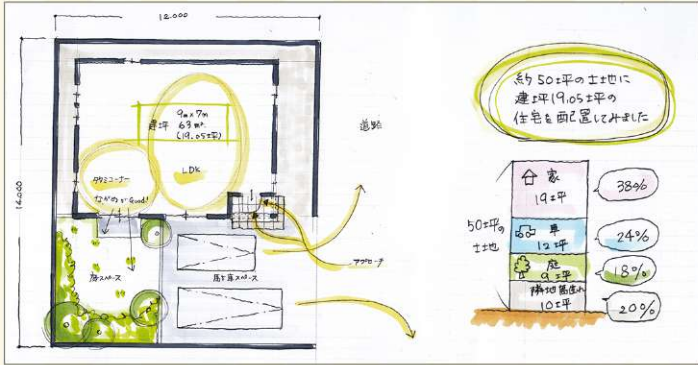 12.000
14.000
9m×7m
建坪 63m²
(19.05坪)
LDK
タタミコーナー
ながめがGood!
庭スペース
駐車スペース
道路
アプローチ
約50坪の土地に
建坪19.05坪の
住宅を配置してみました
50坪の
土地
家
19坪
38%
車
12坪
24%
庭
9坪
18%
隣地間通れ
10坪
20%